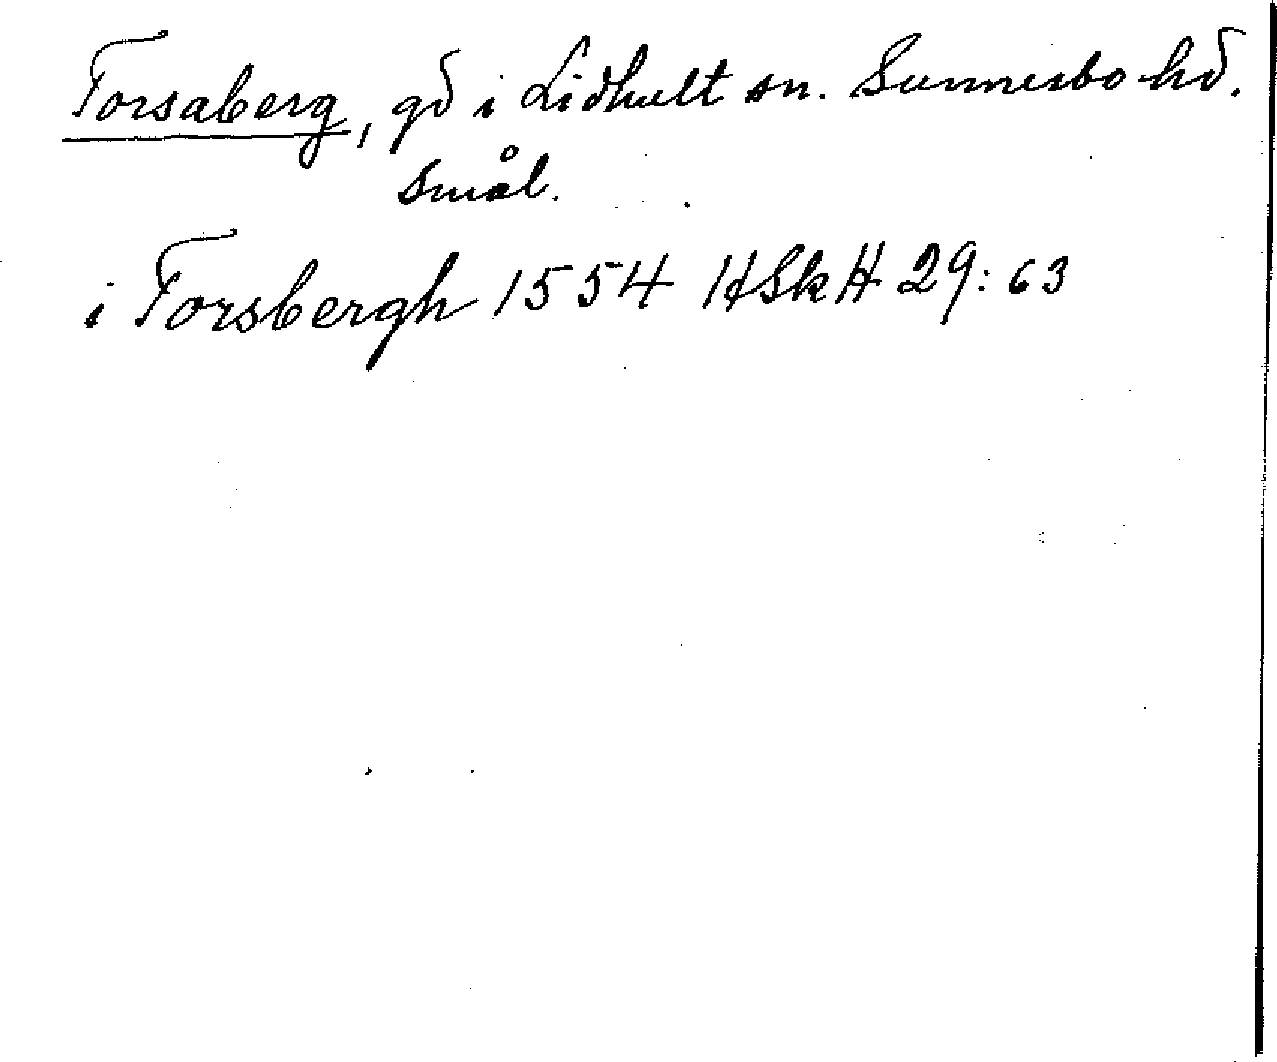 Torsaberg, gd i Lidhult sn. Sunnerbo hd.
Smål.
i Torsbergh 1554 HSkH 29:63